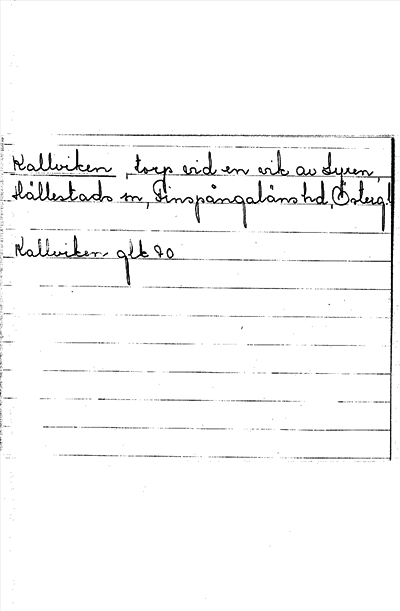 Kallviken, torp vid en vik av Lyren,
Hällestads sn, Finspångaläns hd, Östergl
Kallviken glk 90